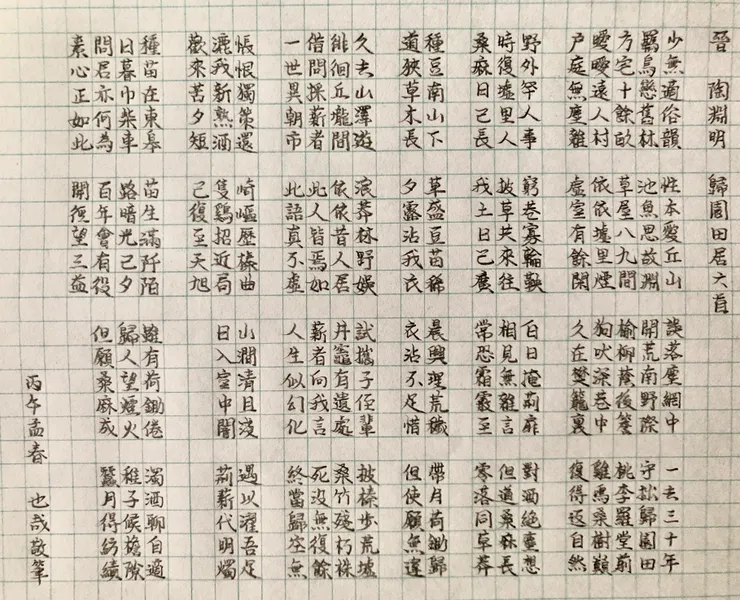 晉 陶淵明 歸園田居六首
少無適俗韻 性本愛丘山 誤落塵網中 一去三十年
羈鳥戀舊林 池魚思故淵 開荒南野際 守拙歸園田
方宅十餘畝 草屋八九間 榆柳蔭後簷 桃李羅堂前
曖曖遠人村 依依墟里煙 狗吠深巷中 雞鳴桑樹顛
戶庭無塵雜 虛室有餘閒 久在樊籠裏 復得返自然
野外罕人事 窮巷寡輪鞅 白日掩荊扉 對酒絕塵想
時復墟里人 披草共來往 相見無雜言 但道桑麻長
桑麻日已長 我土日已廣 常恐霜霰至 零落同草莽
種豆南山下 草盛豆苗稀 晨興理荒穢 帶月荷鋤歸
道狹草木長 夕露沾我衣 衣沾不足惜 但使願無違
久去山澤遊 浪莽林野娛 試攜子侄輩 披榛步荒墟
徘徊丘壠間 依依昔人居 井竈有遺處 桑竹殘朽株
借問採薪者 此人皆焉如 薪者向我言 死沒無復餘
一世異朝市 此語真不虛 人生似幻化 終當歸空無
悵恨獨策還 崎嶇歷榛曲 山澗清且淺 遇以濯吾足
漉我新熟酒 隻鷄招近局 日入室中闇 荊薪代明燭
歡來苦夕短 已復至天旭
種苗在東皋 苗生滿阡陌 雖有荷鋤倦 濁酒聊自適
日暮巾柴車 路暗光已夕 歸人望煙火 稚子候簷隙
問君亦何為 百年會有役 但願桑麻成 蠶月得紡績
素心正如此 開徑望三益
丙午孟春 也哉敬筆